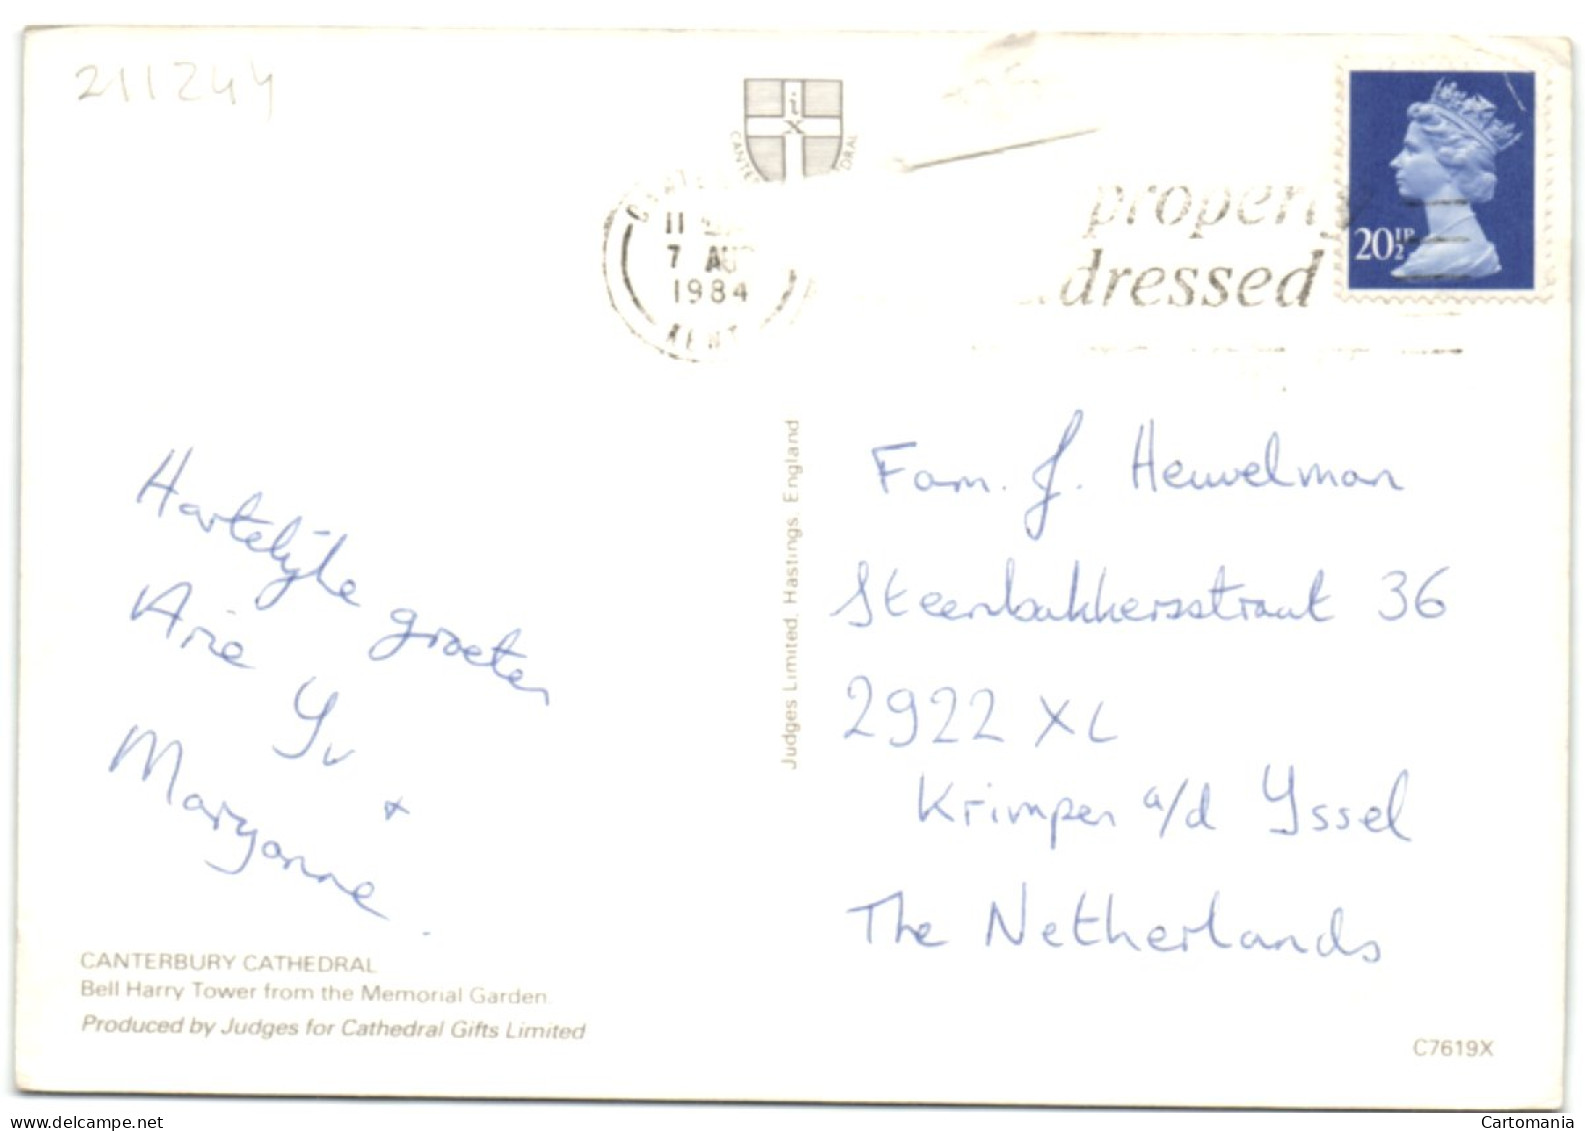 211244
i
X
11
7 AU
1984
KENT
properly
dressed
20½P
Hartelijke groeten
Arie Yv +
Maryanne.
Judges Limited, Hastings, England
Fam. J. Heuvelman
Steenbakkersstraat 36
2922 XL
Krimpen a/d Yssel
The Netherlands
CANTERBURY CATHEDRAL
Bell Harry Tower from the Memorial Garden.
Produced by Judges for Cathedral Gifts Limited
C7619X
Cartomania